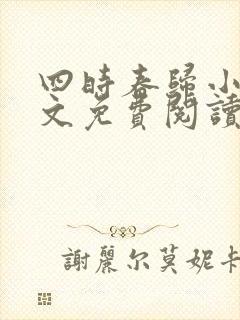 四時春歸小
文免費閱讀
謝麗尔莫妮卡